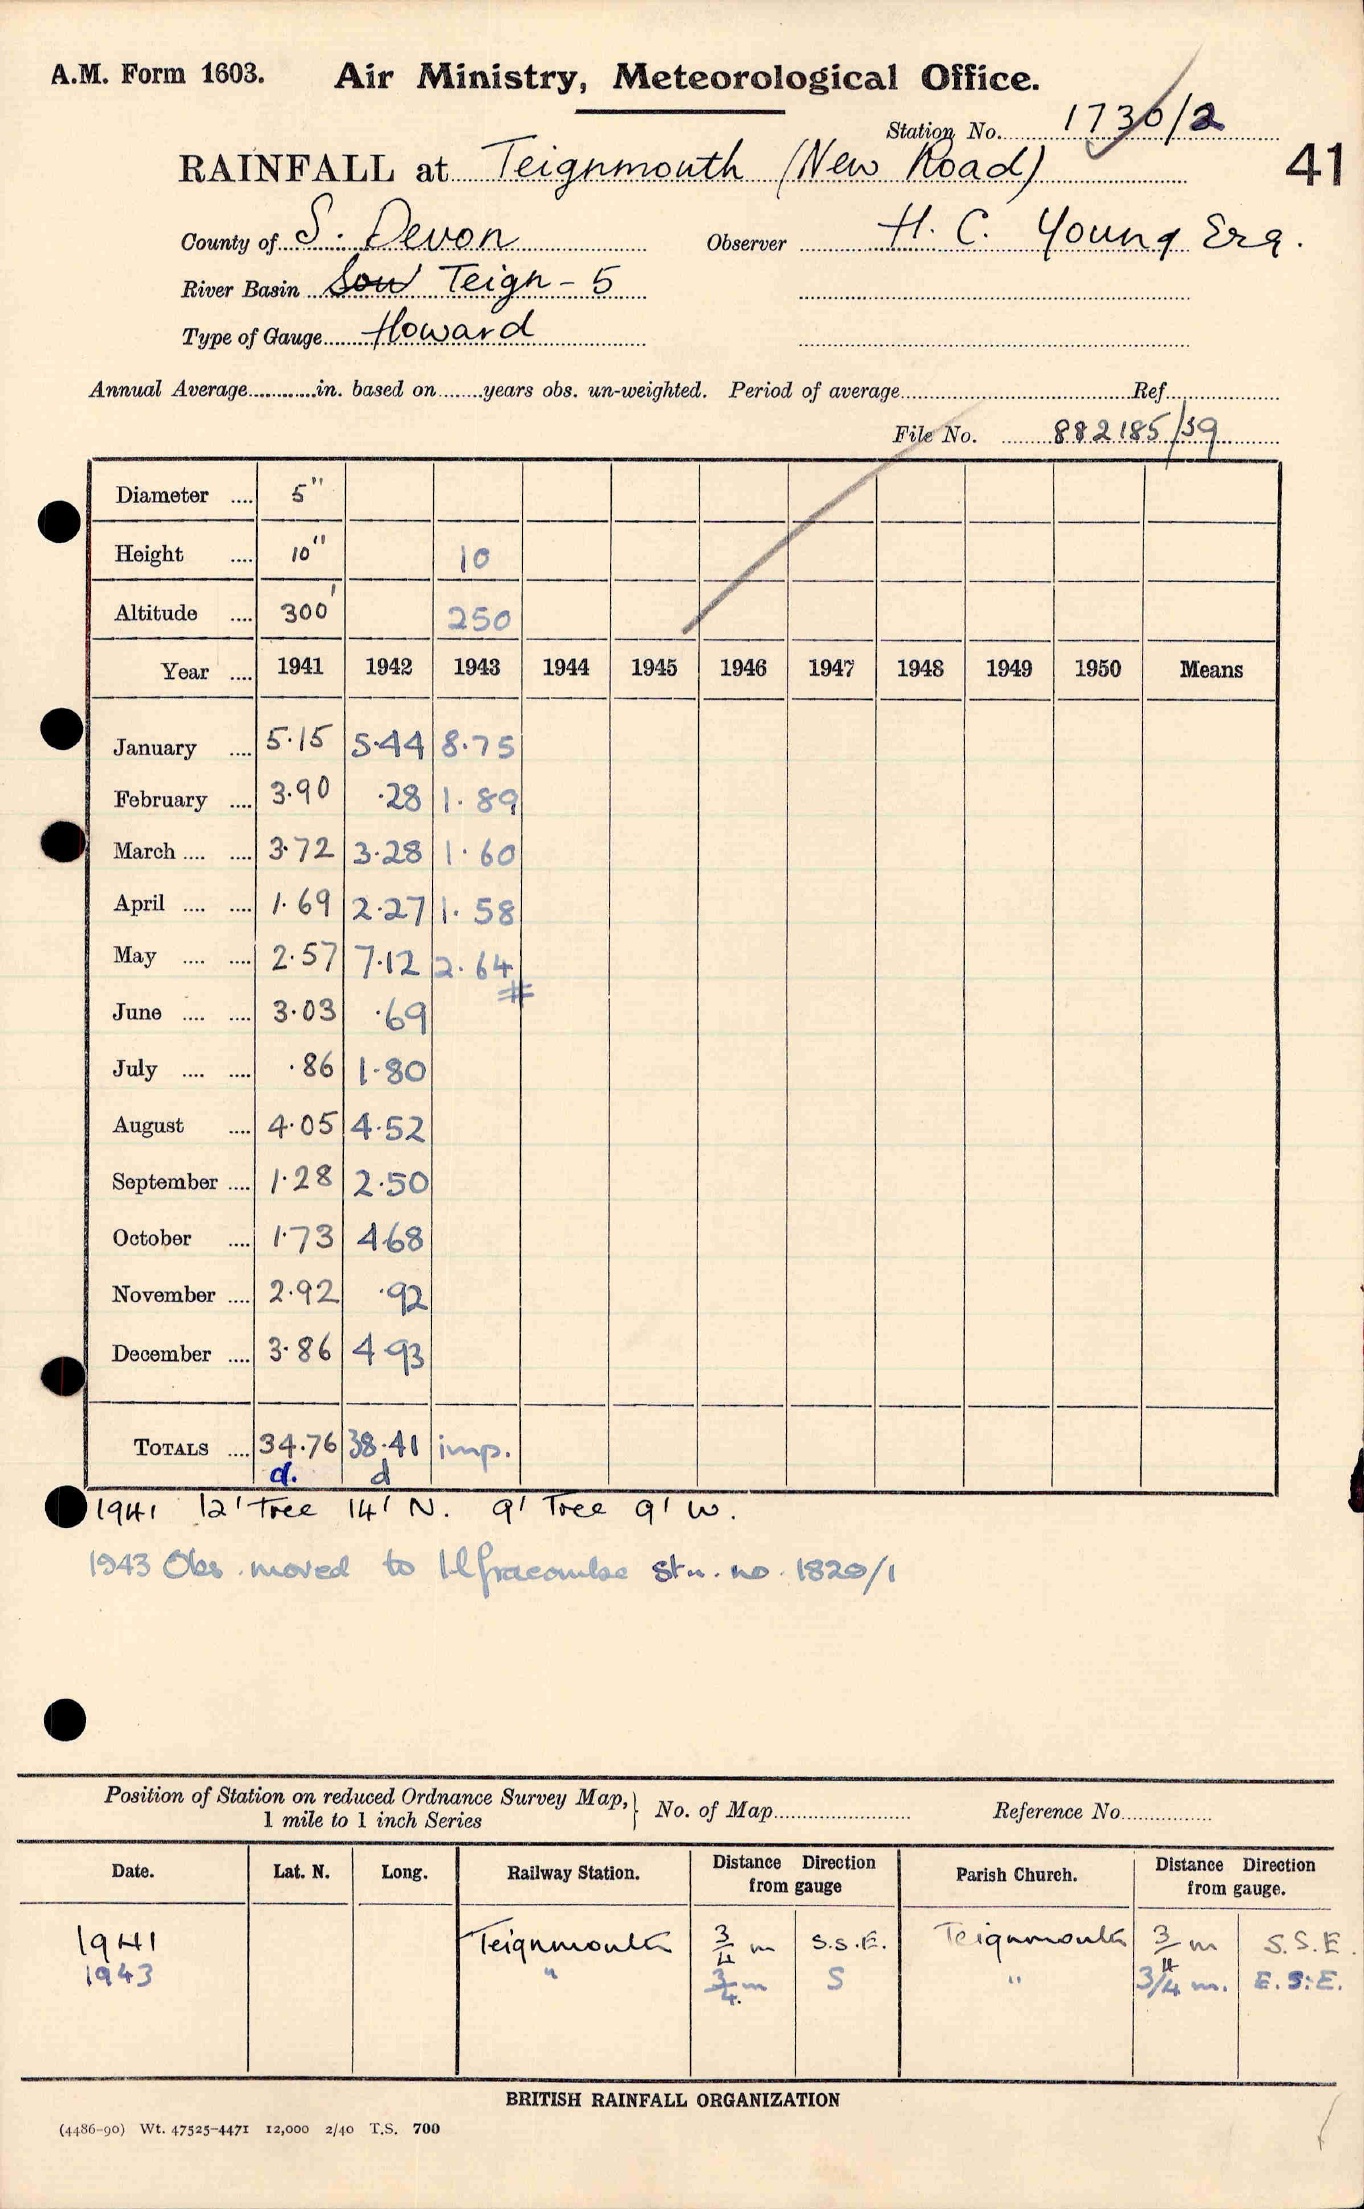 A.M. Form 1603. Air Ministry, Meteorological Office.
Station No. 1730/2
41
RAINFALL at Teignmouth (New Road)
County of S. Devon Observer H. C. Young Esq.
River Basin Sou Teign - 5
Type of Gauge Howard
Annual Average............in. based on.......years obs. un-weighted. Period of average.................... Ref.................
File No. 882185/39
Diameter .... 5"
Height .... 10" 10
Altitude .... 300' 250
Year .... 1941 1942 1943 1944 1945 1946 1947 1948 1949 1950 Means
January .... 5.15 5.44 8.75
February .... 3.90 .28 1.89
March .... .... 3.72 3.28 1.60
April .... .... 1.69 2.27 1.58
May .... .... 2.57 7.12 2.64
#
June .... .... 3.03 .69
July .... .... .86 1.80
August .... 4.05 4.52
September .... 1.28 2.50
October .... 1.73 468
November .... 2.92 .92
December .... 3.86 4 93
TOTALS .... 34.76 38.41 imp.
d. d
1941 12' Tree 14' N. 9' Tree 9' W.
1943 Obs. moved to Ilfracombe stn. no. 1820/1
Position of Station on reduced Ordnance Survey Map, } No. of Map........................ Reference No................
1 mile to 1 inch Series
Date. Lat. N. Long. Railway Station. Distance Direction Parish Church. Distance Direction
from gauge from gauge.
1941 Teignmouth 3/4 m S.S.E. Teignmouth 3/4 m S.S.E.
1943 " 3/4 m S " 3/4 m. E.S.E.
BRITISH RAINFALL ORGANIZATION
(4486-90) Wt. 47525-4471 12,000 2/40 T.S. 700